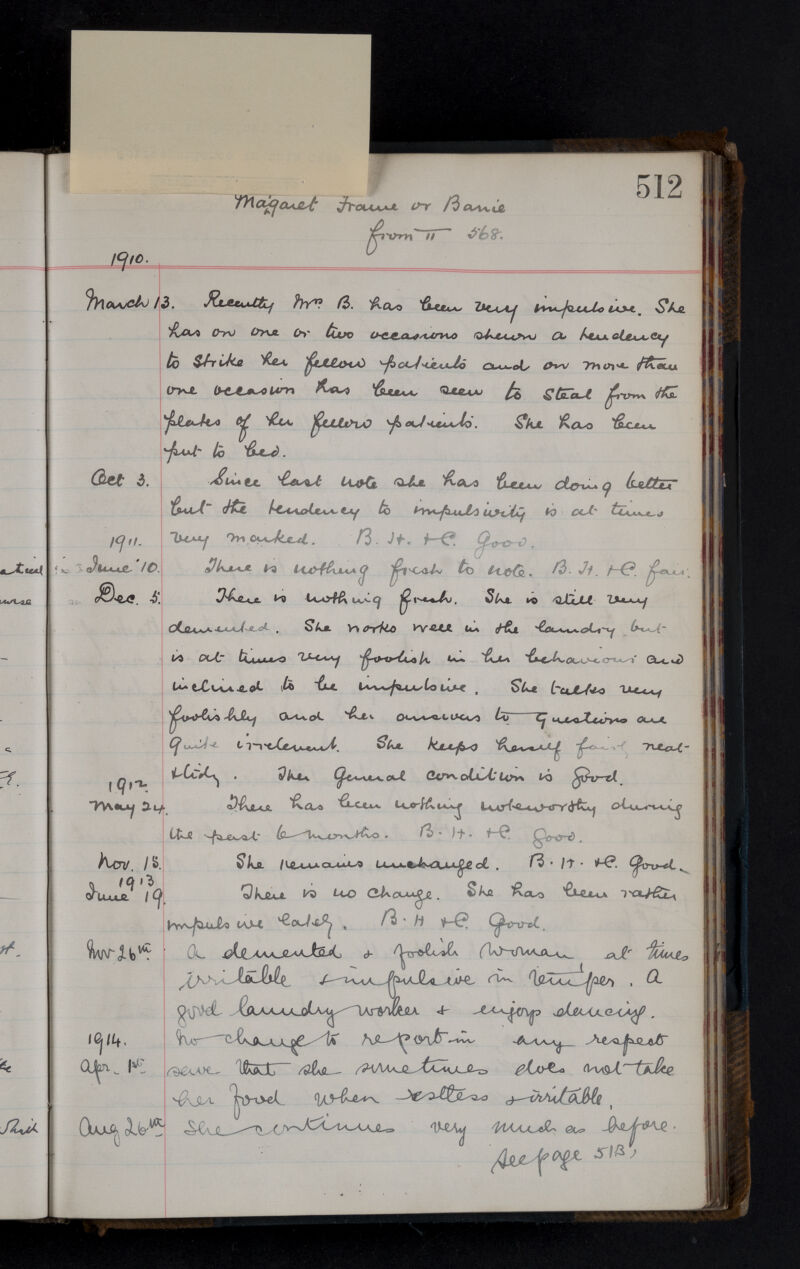 512
Magaret Frame or Barrie
from II 568.
1910.
March 13. Recently Mrs B. has been very impulsive. She
has on one or two occasions shewn a tendency
to strike her fellow patients and on more than
one occasion has been seen to steal from the
plates of her fellow patients. She has been
put to bed.
Oct 3. Since last note she has been doing better
but the tendency to impulsivity is at times
very marked. B. H. + C. Good.
1911.
June 10. There is nothing fresh to note. B. H. + C. fair.
Dec. 5. There is nothing fresh. She is still very
demented. She works well in the laundry but
is at times very foolish in her behaviour and
inclined to be impulsive. She talks very
foolishly and her answers to questions are
quite irrelevant. She keeps herself fairly neat
+ tidy. Her general condition is good.
1912.
May 24. There has been nothing noteworthy during
the past 6 months. B. H. + C. good.
Nov. 18. She remains unchanged. B. H. + C. Good.
1913
June 19. There is no change. She has been rather
impulsive lately. B. H + C. Good.
Nov 26th A demented + foolish woman, at times
irritable + impulsive in temper. A
good laundry worker + enjoys dancing.
1914. No change to report in any respect
Apr. 1st save that she sometimes does not take
her food when restless + irritable.
Aug 26th She continues very much as before.
See page 51B